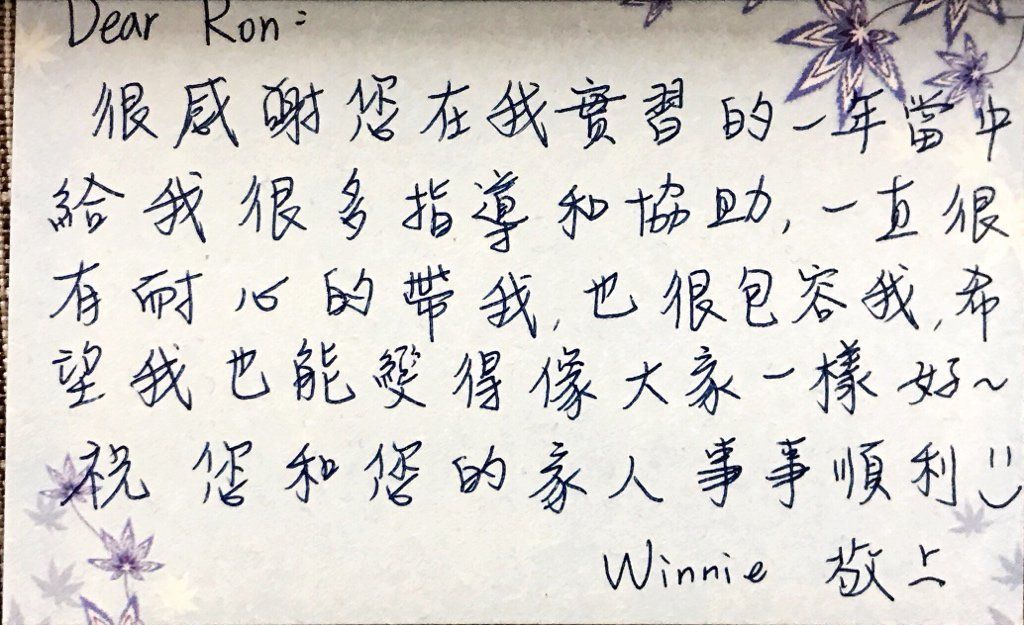 Dear Ron:
很感謝您在我實習的一年當中
給我很多指導和協助,一直很
有耐心的帶我,也很包容我,希
望我也能變得像大家一樣好~
祝 您和您的家人事事順利 :)
Winnie 敬上